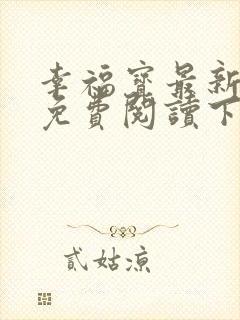 幸福寶最新
免費閱讀下
貳姑涼